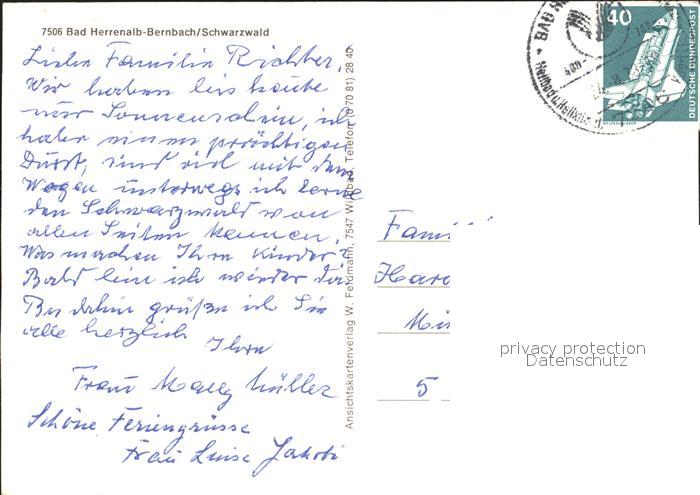 7506 Bad Herrenalb-Bernbach/Schwarzwald
Liebe Familie Richter,
Wir haben bis heute
nur Sonnenschein, ich
habe einen prächtigen
Durst, sind viel mit dem
Wagen unterwegs ich lerne
den Schwarzwald von
allen Seiten kennen.
Was machen Ihre Kinder?
Bald bin ich wieder da
Bis dahin grüße ich Sie
alle herzlich
Ihre
Frau Müller
Schöne Feriengrüsse
Frau Luise Jakobi
Ansichtskartenverlag W. Feldmann, 7547 Wildbad, Telefon (0 70 81) 28 40
40
DEUTSCHE BUNDESPOST
BAD
Fami
Hard
Mü
5
privacy protection
Datenschutz